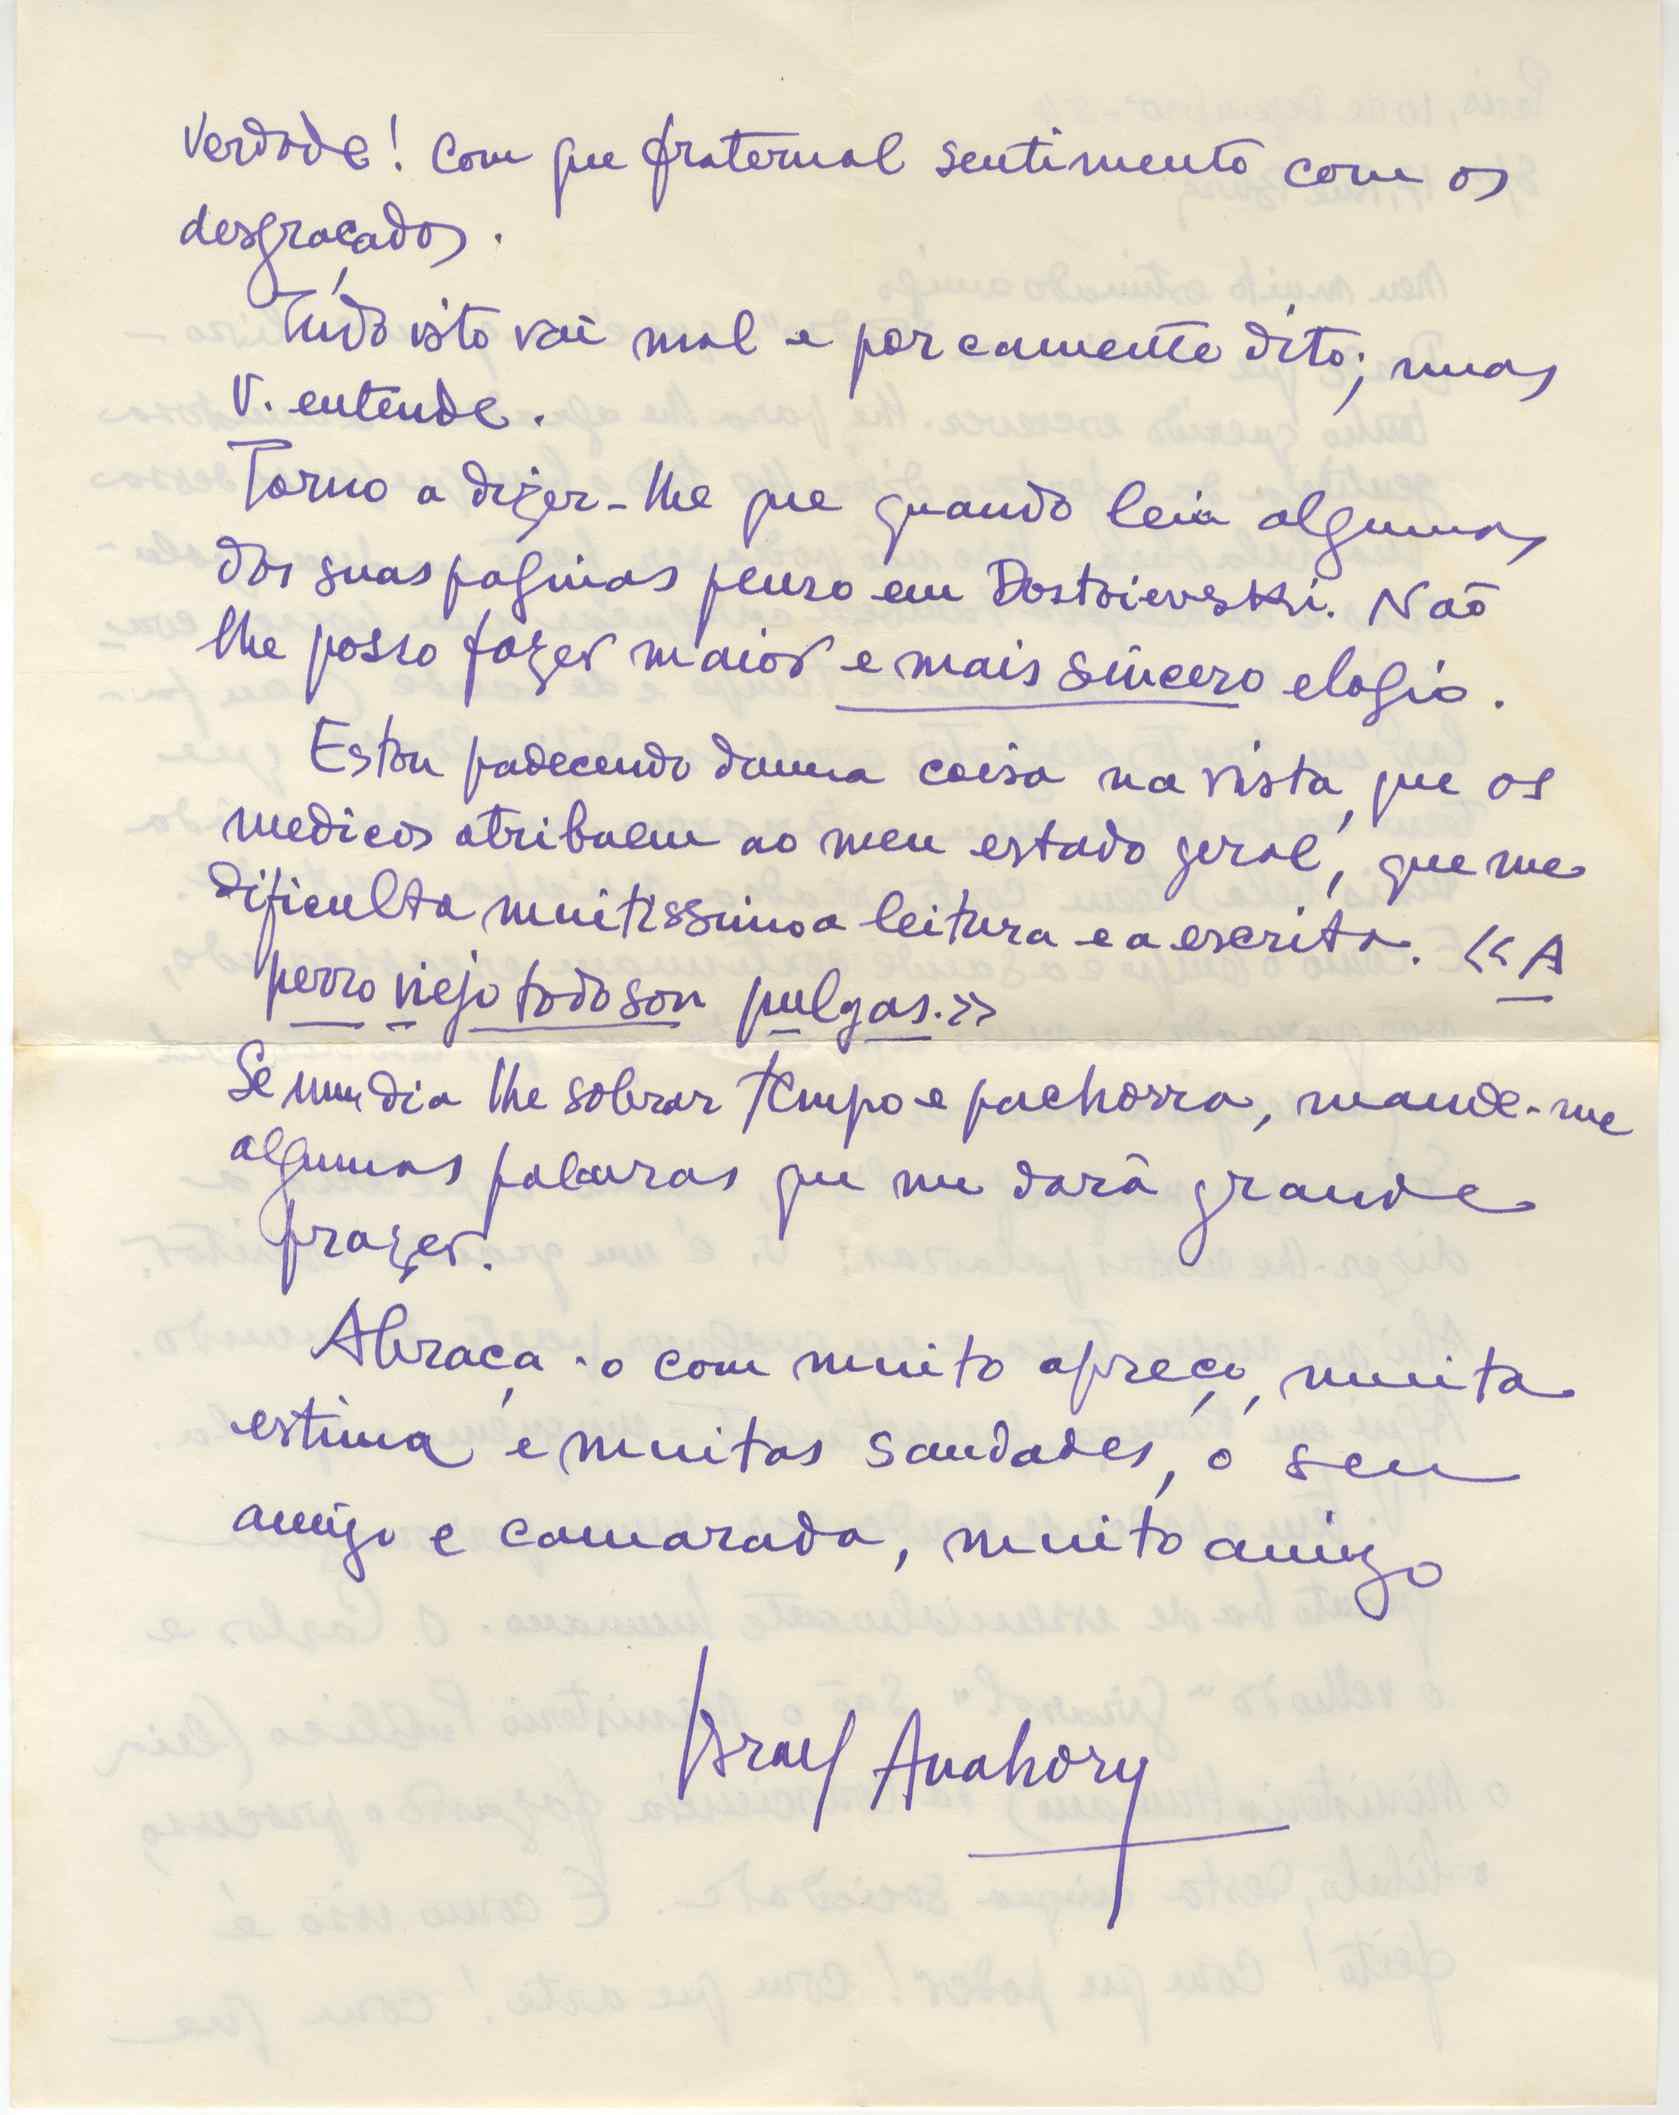 verdade! Com que fraternal sentimento com os
desgraçados.
Tudo isto vai mal e porcamente dito; mas
V. entende.
Torno a dizer-lhe que quando leio algumas
das suas paginas penso em Dostoievski. Não
lhe posso fazer maior e mais sincero elogio.
Estou padecendo duma coisa na vista, que os
medicos atribuem ao meu estado geral, que me
dificulta muitissimo a leitura e a escrita. «A
perro viejo todo son pulgas.»
Se um dia lhe sobrar tempo e pachorra, mande-me
algumas palavras que me dará grande
prazer.
Abraça-o com muito apreço, muita
estima e muitas saudades, o seu
amigo e camarada, muito amigo
Israel Anahory